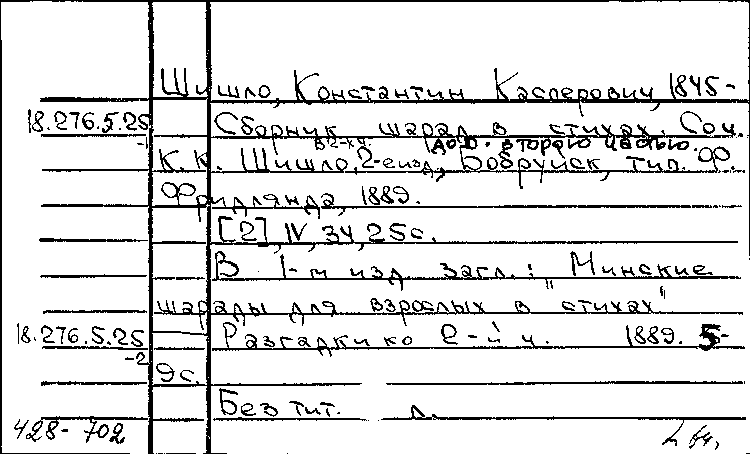 Шишло, Константин Касперович, 1845-
18.276.5.25 Сборник шарад в стихах. Соч.
-1 в 2-х ч. доп. второю частью.
К.К. Шишло, 2-е изд., Бобруйск, тип. Ф.
Фридлянда, 1889.
[2], IV, 34, 25 с.
В 1-м изд. загл.: "Минские
шарады для взрослых в стихах"
18.276.5.25 Разгадки ко 2-й ч. 1889. 5-
-2
9 с.
Без тит. л.
428-702